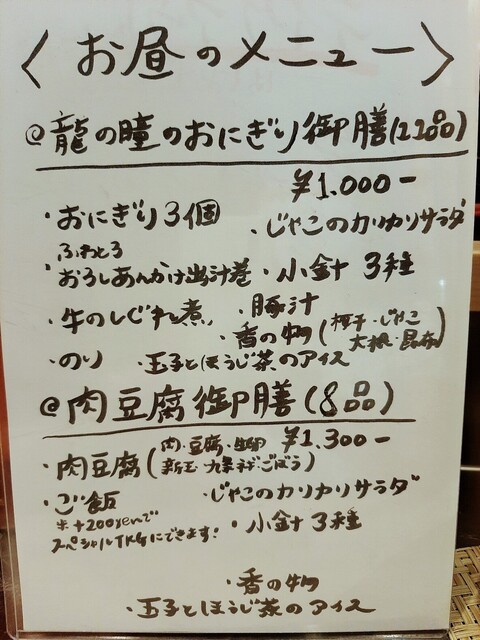 〈お昼のメニュー〉
@龍の瞳のおにぎり御膳(12品)
¥1.000-
・おにぎり3個 ・じゃこのカリカリサラダ
ふわとろ
・おろしあんかけ出汁巻 ・小鉢 3種
・牛のしぐれ煮 ・豚汁
・香の物(梅干・じゃこ
大根・昆布)
・のり ・玉子とほうじ茶のアイス
@肉豆腐御膳(8品)
¥1.300-
・肉豆腐(肉・豆腐・生卵
新玉・九条ネギ・ごぼう)
・ご飯 ・じゃこのカリカリサラダ
※+200yenで
スペシャルTKGにできます! ・小鉢 3種
・香の物
・玉子とほうじ茶のアイス